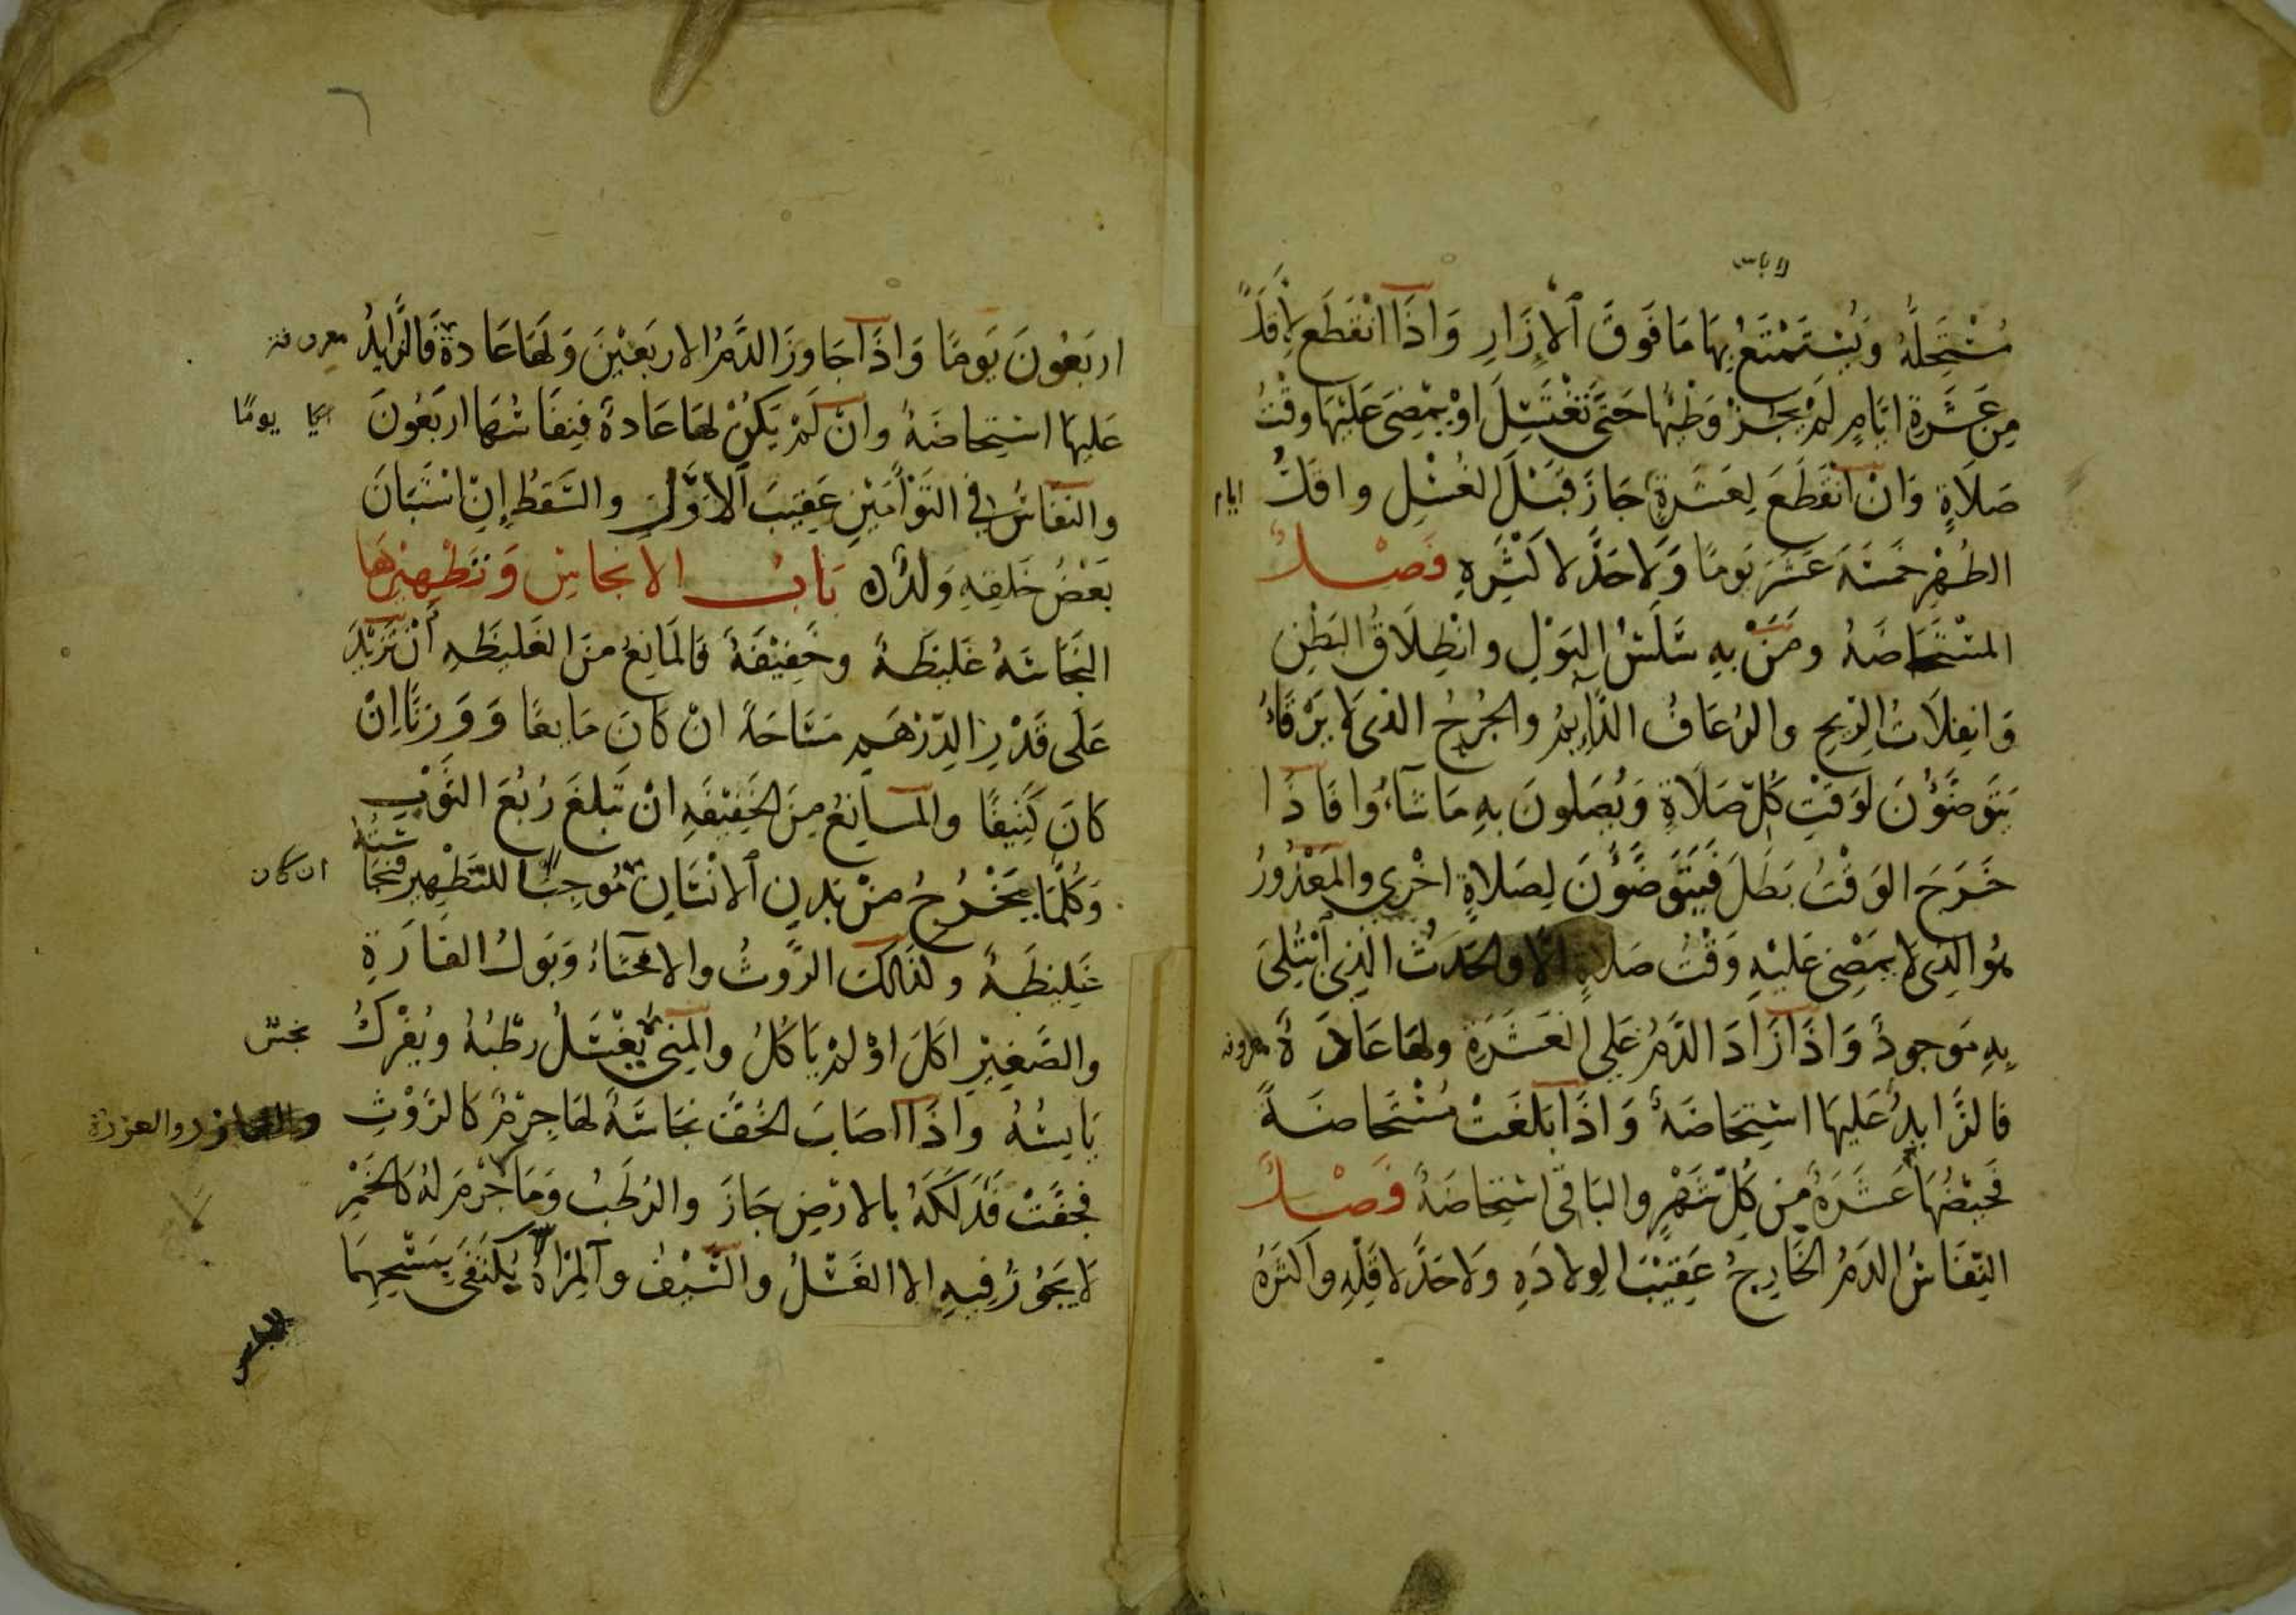 لاباس
مُسْتَحِلُّهُ وَيُسْتَمْتَعُ بِهَا مَا فَوقَ الْاِزَارِ وَاذَا انْقَطَعَ لِأقَلَّ
مِن عَشَرَةِ ايَّامٍ لَمْ يَجُزْ وَطْئُهَا حَتَّى تَغْتَسِلَ اوْ يَمْضِىَ عَلَيْهَا وقْتُ
صَلَاةٍ وَانْ انْقَطَعَ لِعَشَرَةِ جَازَ قَبْلَ الغُسْلِ واقَلُّ ايام
الطُهْرِ خَمسَةَ عَشَرَ يَومًا وَلَاحَدَّ لاكْثَرِهِ فَصْلٌ
المسْتَحَاضَةُ ومَنْ بِهِ سَلَسُ البَوْلِ وانْطِلَاقُ البَطْنِ
وَانفِلَاتُ الرِّيحِ والرُعَافُ الدَّايِمُ والجُرْحُ الذى لَا يَرْقَاءُ
يَتَوَضَّؤُنَ لِوَقْتِ كُلِّ صَلَاةٍ وَيُصَلونَ بِهِ مَا شَاءُوا فَاذَا
خَرَجَ الوَقْتُ بَطَلَ فَيَتَوَضَّؤُنَ لِصَلاةٍ اخْرى والمَعْذُورُ
هُوَ الذِى لَا يَمْضِى عَلَيْهِ وَقْتُ صَلاةٍ الَّا والحَدَثُ الذِى أُبْتُلِىَ
بِهِ مَوجودٌ وَاذَا زَادَ الدَّمُ عَلَى العَشَرَةِ ولهَا عَادَةٌ معروفه
فَالزَّايِدُ عَليهَا اسْتِحَاضَةٌ وَاذَا بَلَغَتْ مُسْتَحَاضَةً
فَحَيْضُهَا عَشَرَةٌ مِن كُلِّ شَهْرٍ والبَاقى اسْتِحَاضَةٌ فَصْلٌ
النِّفَاسُ الدَمُ الخَارِجُ عَقِيْبَ الوِلادَةِ وَلاحَدَّ لاقَلِّهِ وَاكثَرُهُ
اربَعُونَ يَومًا وَاذَا جَاوزَ الدَّمُ الاربَعِيْنَ وَلَهَا عَادةٌ فَالزَّايِدُ معروفة
عَليهَا اسْتِحَاضَةٌ وانْ لَمْ يَكُنْ لهَا عَادةٌ فنِفَاسُهَا اربَعُونَ يومًا
والنفَاسُ فِى التَوْأمَيْنِ عَقِيبَ الاوَّلِ والسَّقطُ إنِ اسْتَبَانَ
بَعْضُ خَلقِهِ وَلَدٌ بَابُ الانجَاسِ وَتَطْهِيْرِهَا
النَّجَاسَةُ غَلِيظَةٌ وخَفِيْفَةٌ فَالمَانِعُ مِنَ الغَلِيظَةِ أنْ تَزِيْدَ
عَلَى قَدْرِ الدِّرْهَمِ مَسَاحَةً انْ كَانَ مَايعًا وَوَزنًا اِنْ
كَانَ كَثِيفًا والمَانِعُ مِنَ الخَفِيْفَةِ انْ تَبلغَ رُبُعَ الثَوْبِ
وَكُلُّمَا يَخْرُجُ مِنْ بَدنِ الانْسَانِ مُوجِبًا للتَطْهِيرِ فنَجَاسَتُهُ ان كان
غَلِيظَةٌ وكَذَالكَ الرَّوثُ والاخثَاءُ وَبَولُ الفَارَةِ
والصَّغِيْرِ اكَلَ اوْ لمْ يَاكُلْ والمَنِى يُغْسَلُ رطْبُهُ ويُفْرَكُ نجسٌ
يَابِسُهُ واذَا اصَابَ الخُفَّ نجَاسَةٌ لهَا جِرْمٌ كَالرَّوْثِ والعذرة
فجَفَّتْ فَدَلَكَهُ بالارْضِ جَازَ والرَطْبُ ومَا لَا جِرْمَ لهُ كَالخَمْرِ
لَا يَجُوزُ فِيهِ الا الغَسْلُ والسَّيْفُ والمِرْاةُ يُكتَفَى بمَسْحِهِمَا